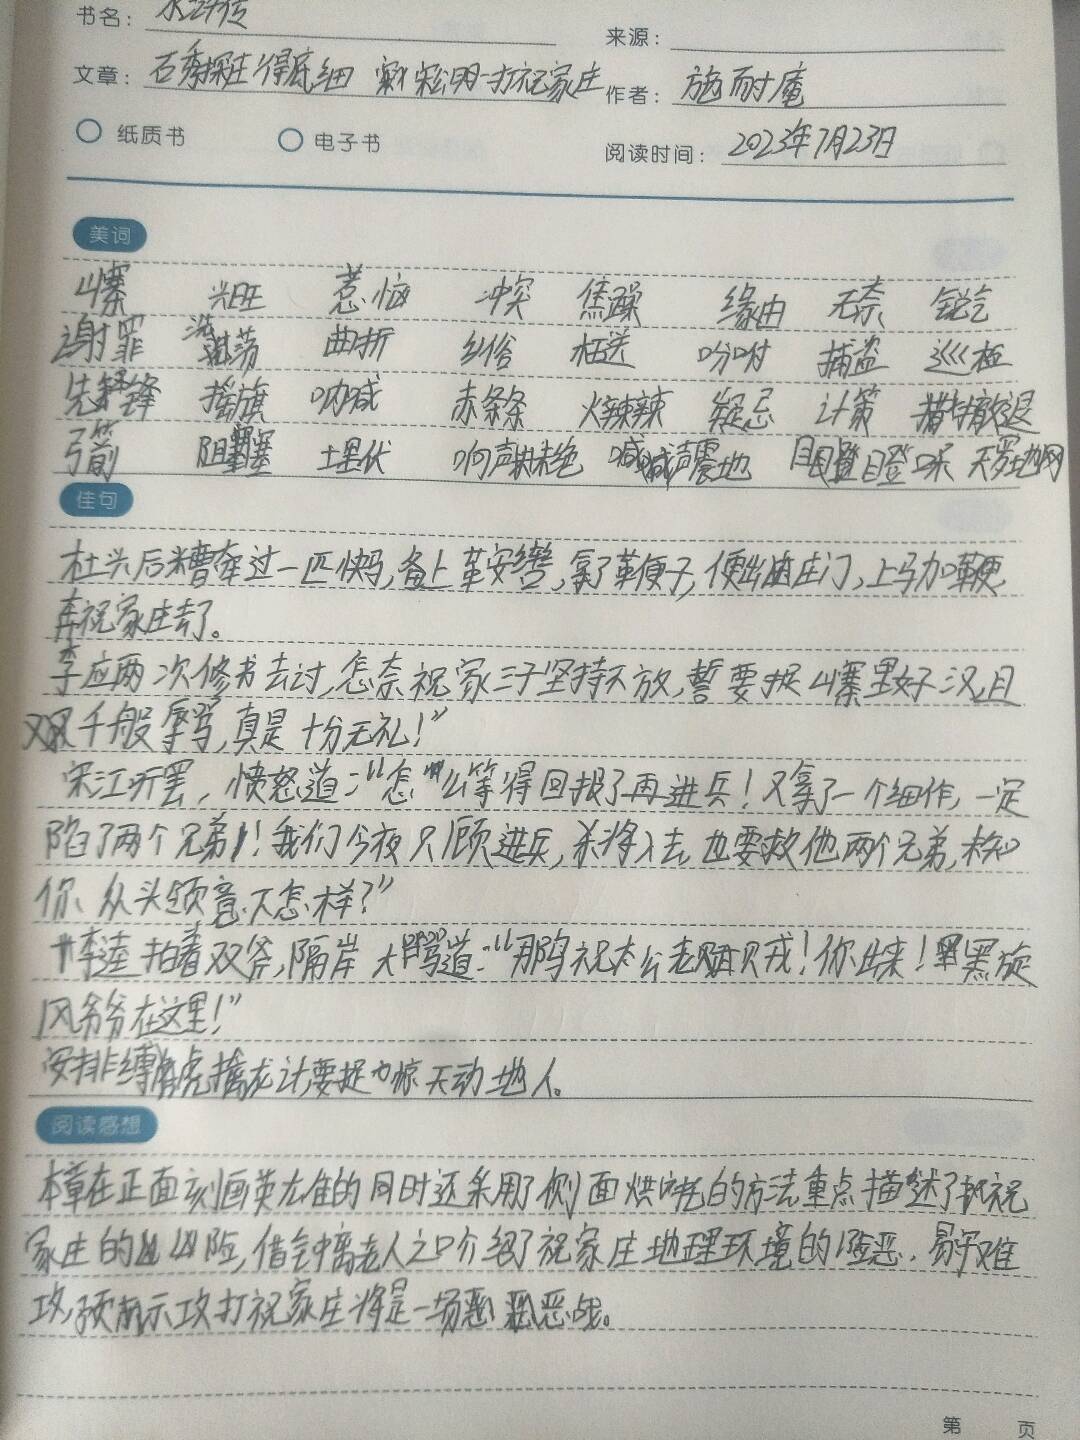 书名：水浒传
来源：
文章：石秀探庄得底细 宋公明一打祝家庄
作者：施耐庵
纸质书 电子书
阅读时间：2023年7月23日
美词
山寨 兴旺 惹恼 冲突 焦躁 缘由 无奈 锐气
谢罪 浩荡 曲折 乡俗 枉送 吩咐 捕盗 巡检
先锋 摇旗 呐喊 赤条条 火辣辣 疑忌 计策 撤退
弓箭 阻塞 埋伏 响声未绝 喊声震地 目瞪口呆 天罗地网
佳句
杜头后糟牵过一匹快马，备上鞍辔，拿了鞭子，便出庄门，上马加鞭，
奔祝家庄去了。
李应两次修书去讨，怎奈祝家三子坚持不放，誓要捉山寨里好汉，且
又千般辱骂，真是十分无礼！”
宋江听罢，愤怒道：“怎么等得回报了再进兵！又拿了一个细作，一定
陷了两个兄弟！我们今夜只顾进兵，杀将入去，也要救他两个兄弟，未知
你众头领意下怎样？”
李逵拍着双斧，隔岸大骂道：“那鸟祝太公老贼！你出来！黑旋
风爷爷在这里！”
安排缚虎擒龙计，要捉惊天动地人。
阅读感想
本章在正面刻画英雄的同时还采用了侧面烘托的方法重点描述了祝
家庄的凶险，借钟离老人之口介绍了祝家庄地理环境的险恶，易守难
攻，预示攻打祝家庄将是一场恶战。
第 页